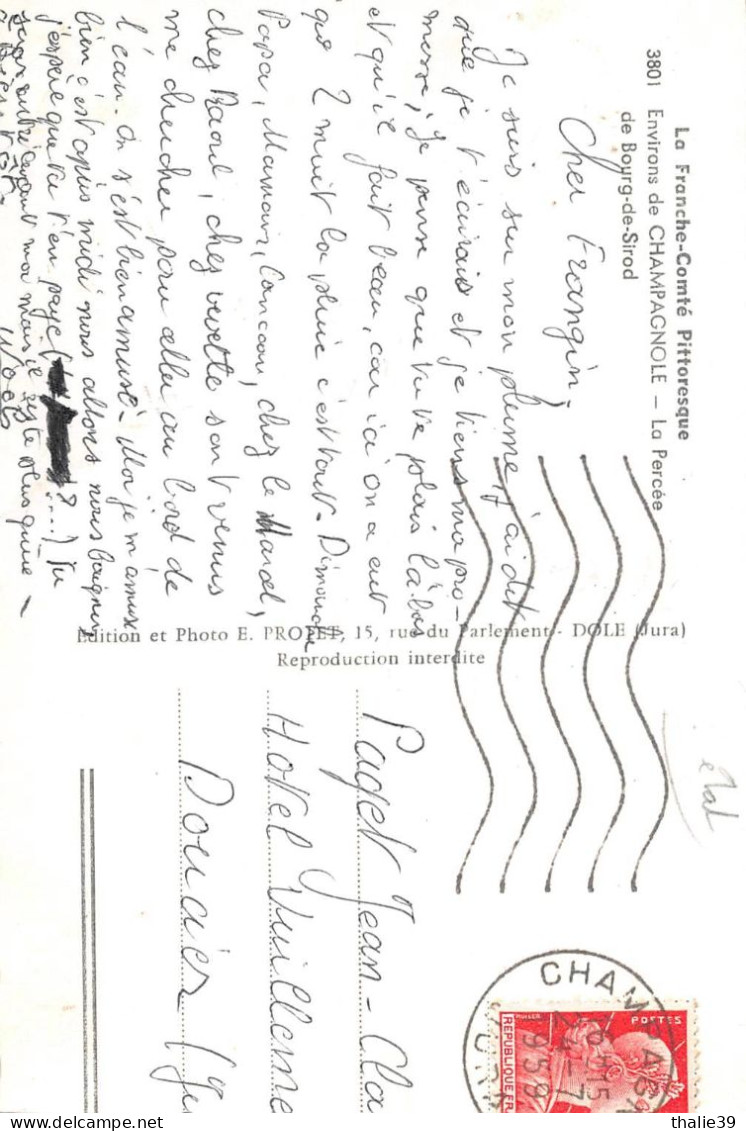 La Franche-Comté Pittoresque
3801 Environs de CHAMPAGNOLE — La Percée
de Bourg-de-Sirod
Cher Frangin,
Je suis sur mon plume j'ai dit
que je t'écrirais et je tiens ma pro-
messe, je pense que tu te plais là bas
et qu'il fait beau, car ici on a eut
que 2 nuit la pluie c'est tout. Dimanche
Papa, Maman, chez le Marcel,
chez Raoul, chez vevette sont venus
me chercher pour aller au bord de
l'eau. On s'est bien amusé. Moi je m'amuse
bien c'est après midi nous allons nous baigner
j'espère que tu t'en paye ? ....) Tu
avant moi mais je
Edition et Photo E. PROTET, 15, rue du Parlement - DOLE (Jura)
Reproduction interdite
Paget Jean-Cla
Hotel Vuilleme
Doucier (Ju
état
CHAMPAGN
16H15
24-7
1959
JURA
POSTES
REPUBLIQUE FR
MULLER
thalie39